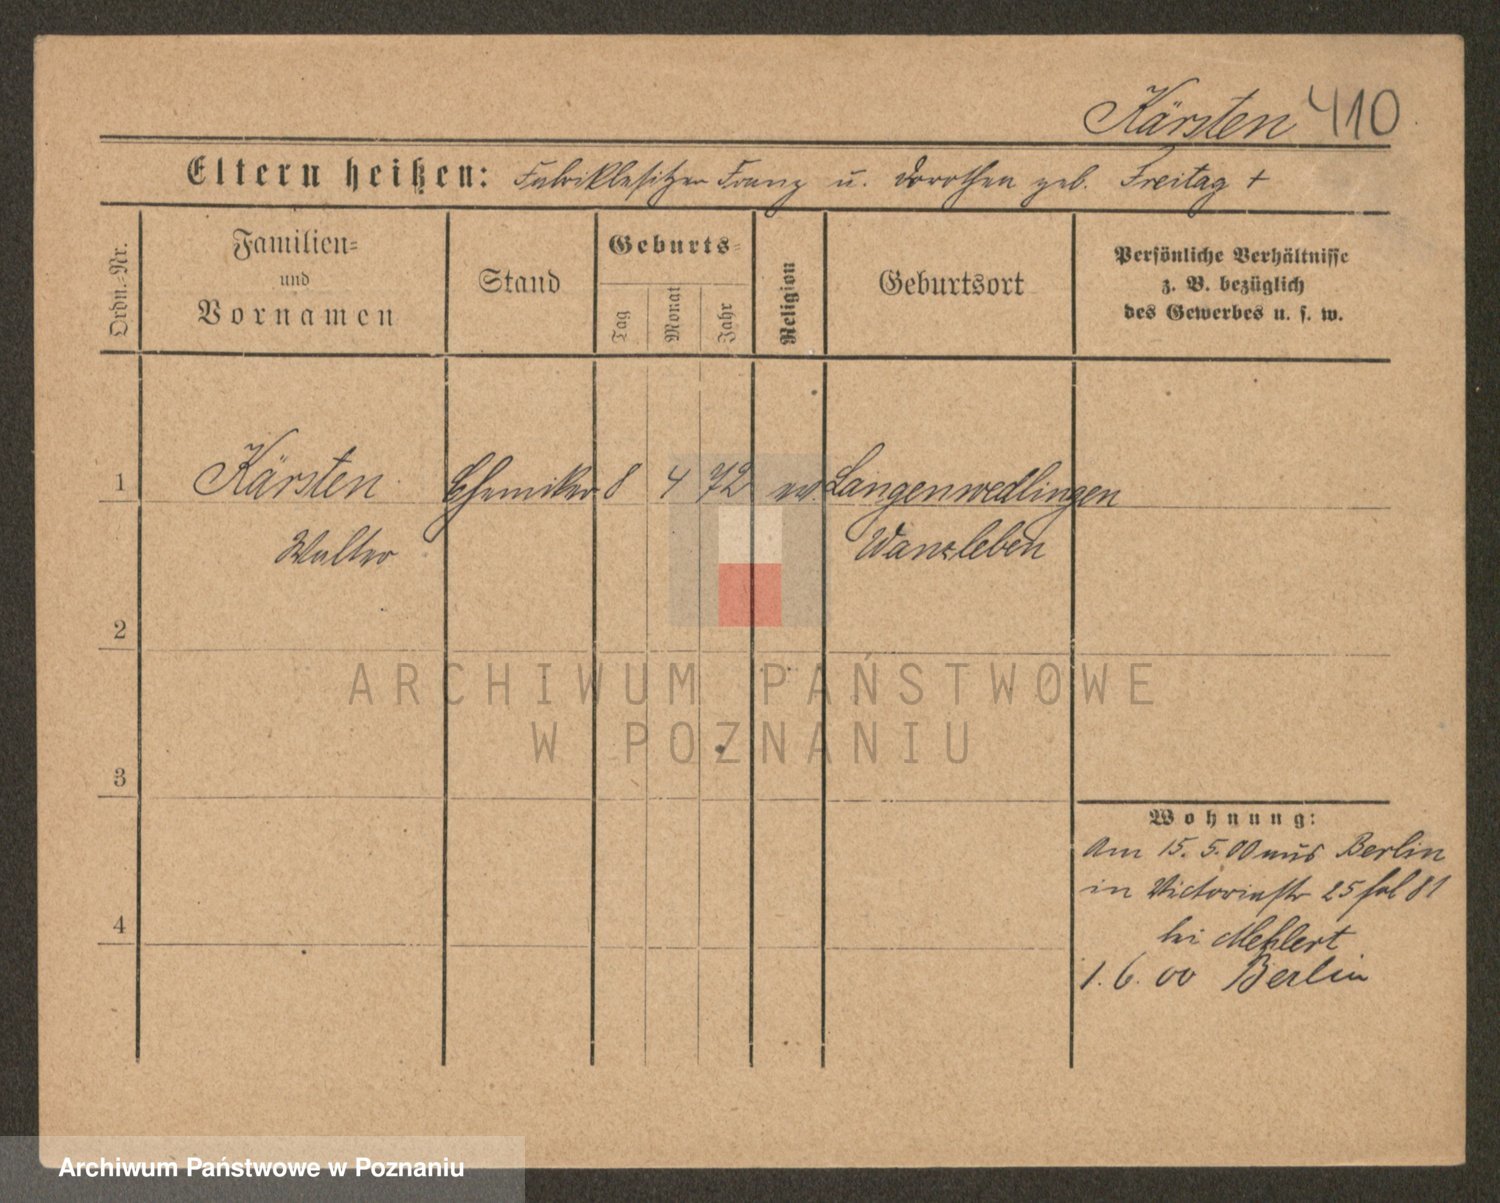 Kärsten 410
Eltern heißen: Fabrikbesitzer Franz u. Dorothea geb. Freitag +
Ordn.-Nr.
Familien-
und
Vornamen
Stand
Geburts-
Tag
Monat
Jahr
Religion
Geburtsort
Persönliche Verhältnisse
z. B. bezüglich
des Gewerbes u. s. w.
1 Kärsten Chemiker 8 4 72 ev. Langenwedlingen
Walter Wanzleben
2
ARCHIWUM PAŃSTWOWE
W POZNANIU
3
Wohnung:
Am 15. 5. 00 aus Berlin
in Victoriastr 25 fol 81
4
bei Mehlert
1. 6. 00 Berlin
Archiwum Państwowe w Poznaniu